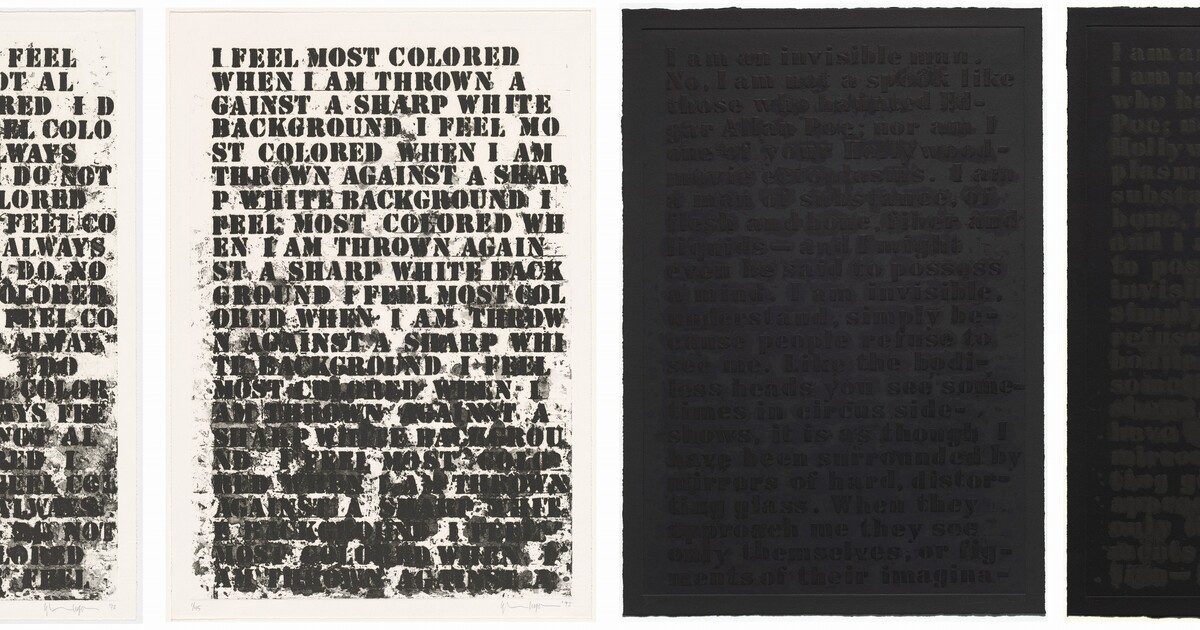 FEEL
OT AL
RED I D
EL COLO
LWAYS
I DO NOT
LORED
FEEL CO
ALWAYS
I DO NO
OLORED
FEEL CO
ALWAY
I DO
COLOR
AYS FEE
NOT AL
RED I
FEEL COL
ALWAYS
DO NOT
ORED
FEEL
I FEEL MOST COLORED
WHEN I AM THROWN A
GAINST A SHARP WHITE
BACKGROUND I FEEL MO
ST COLORED WHEN I AM
THROWN AGAINST A SHAR
P WHITE BACKGROUND I
FEEL MOST COLORED WH
EN I AM THROWN AGAIN
ST A SHARP WHITE BACK
GROUND I FEEL MOST COL
ORED WHEN I AM THROW
N AGAINST A SHARP WHI
TE BACKGROUND I FEEL
MOST COLORED WHEN I
AM THROWN AGAINST A
SHARP WHITE BACKGROU
ND I FEEL MOST COLO
RED WHEN I AM THROWN
AGAINST A SHARP WHIT
E BACKGROUND I FEEL
MOST COLORED WHEN I
AM THROWN AGAINST A
I am an invisible man.
No, I am not a spook like
those who haunted Ed-
gar Allan Poe; nor am I
one of your Hollywood-
movie ectoplasms. I am
a man of substance, of
flesh and bone, fiber and
liquids—and I might
even be said to possess
a mind. I am invisible,
understand, simply be-
cause people refuse to
see me. Like the bodi-
less heads you see some-
times in circus side-
shows, it is as though I
have been surrounded by
mirrors of hard, distor-
ting glass. When they
approach me they see
only themselves, or fig-
ments of their imagina-
I am a
I am n
who h
Poe; n
Hollyw
plasm
substa
bone,
and I
to pos
invisi
simply